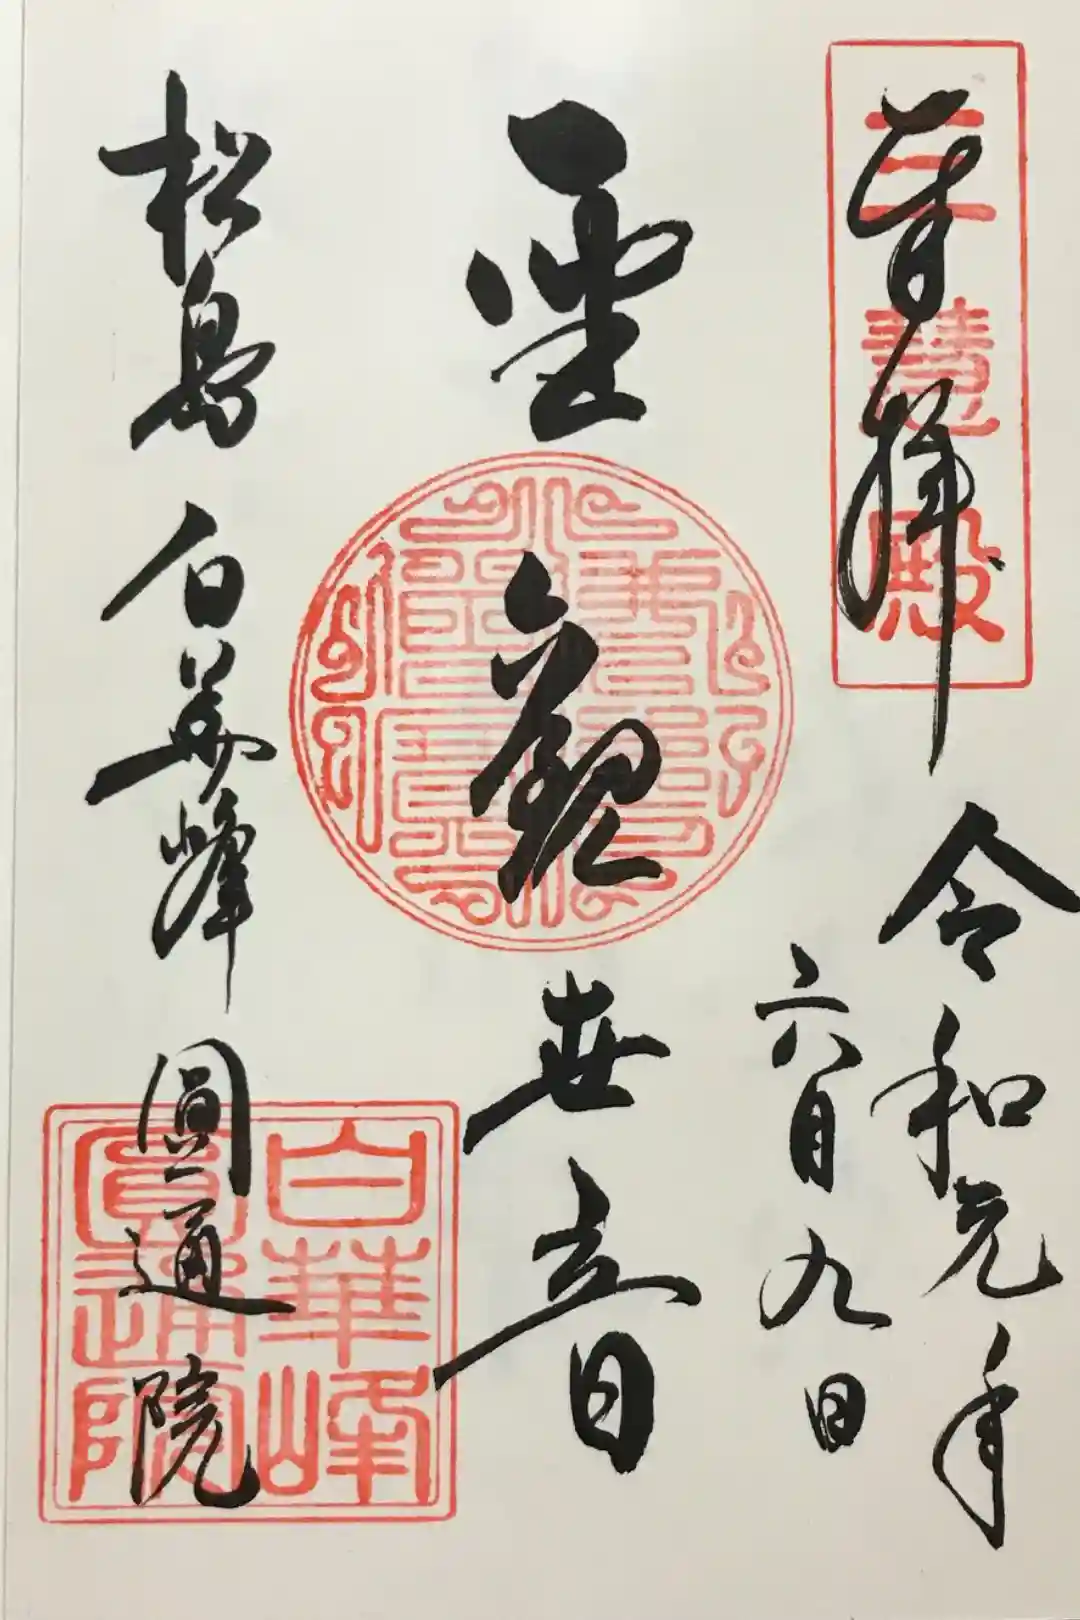 三慧殿
奉拝
令和元年
六月九日
聖観世音
松島 白華峰 圓通院
白華峰
圓通院